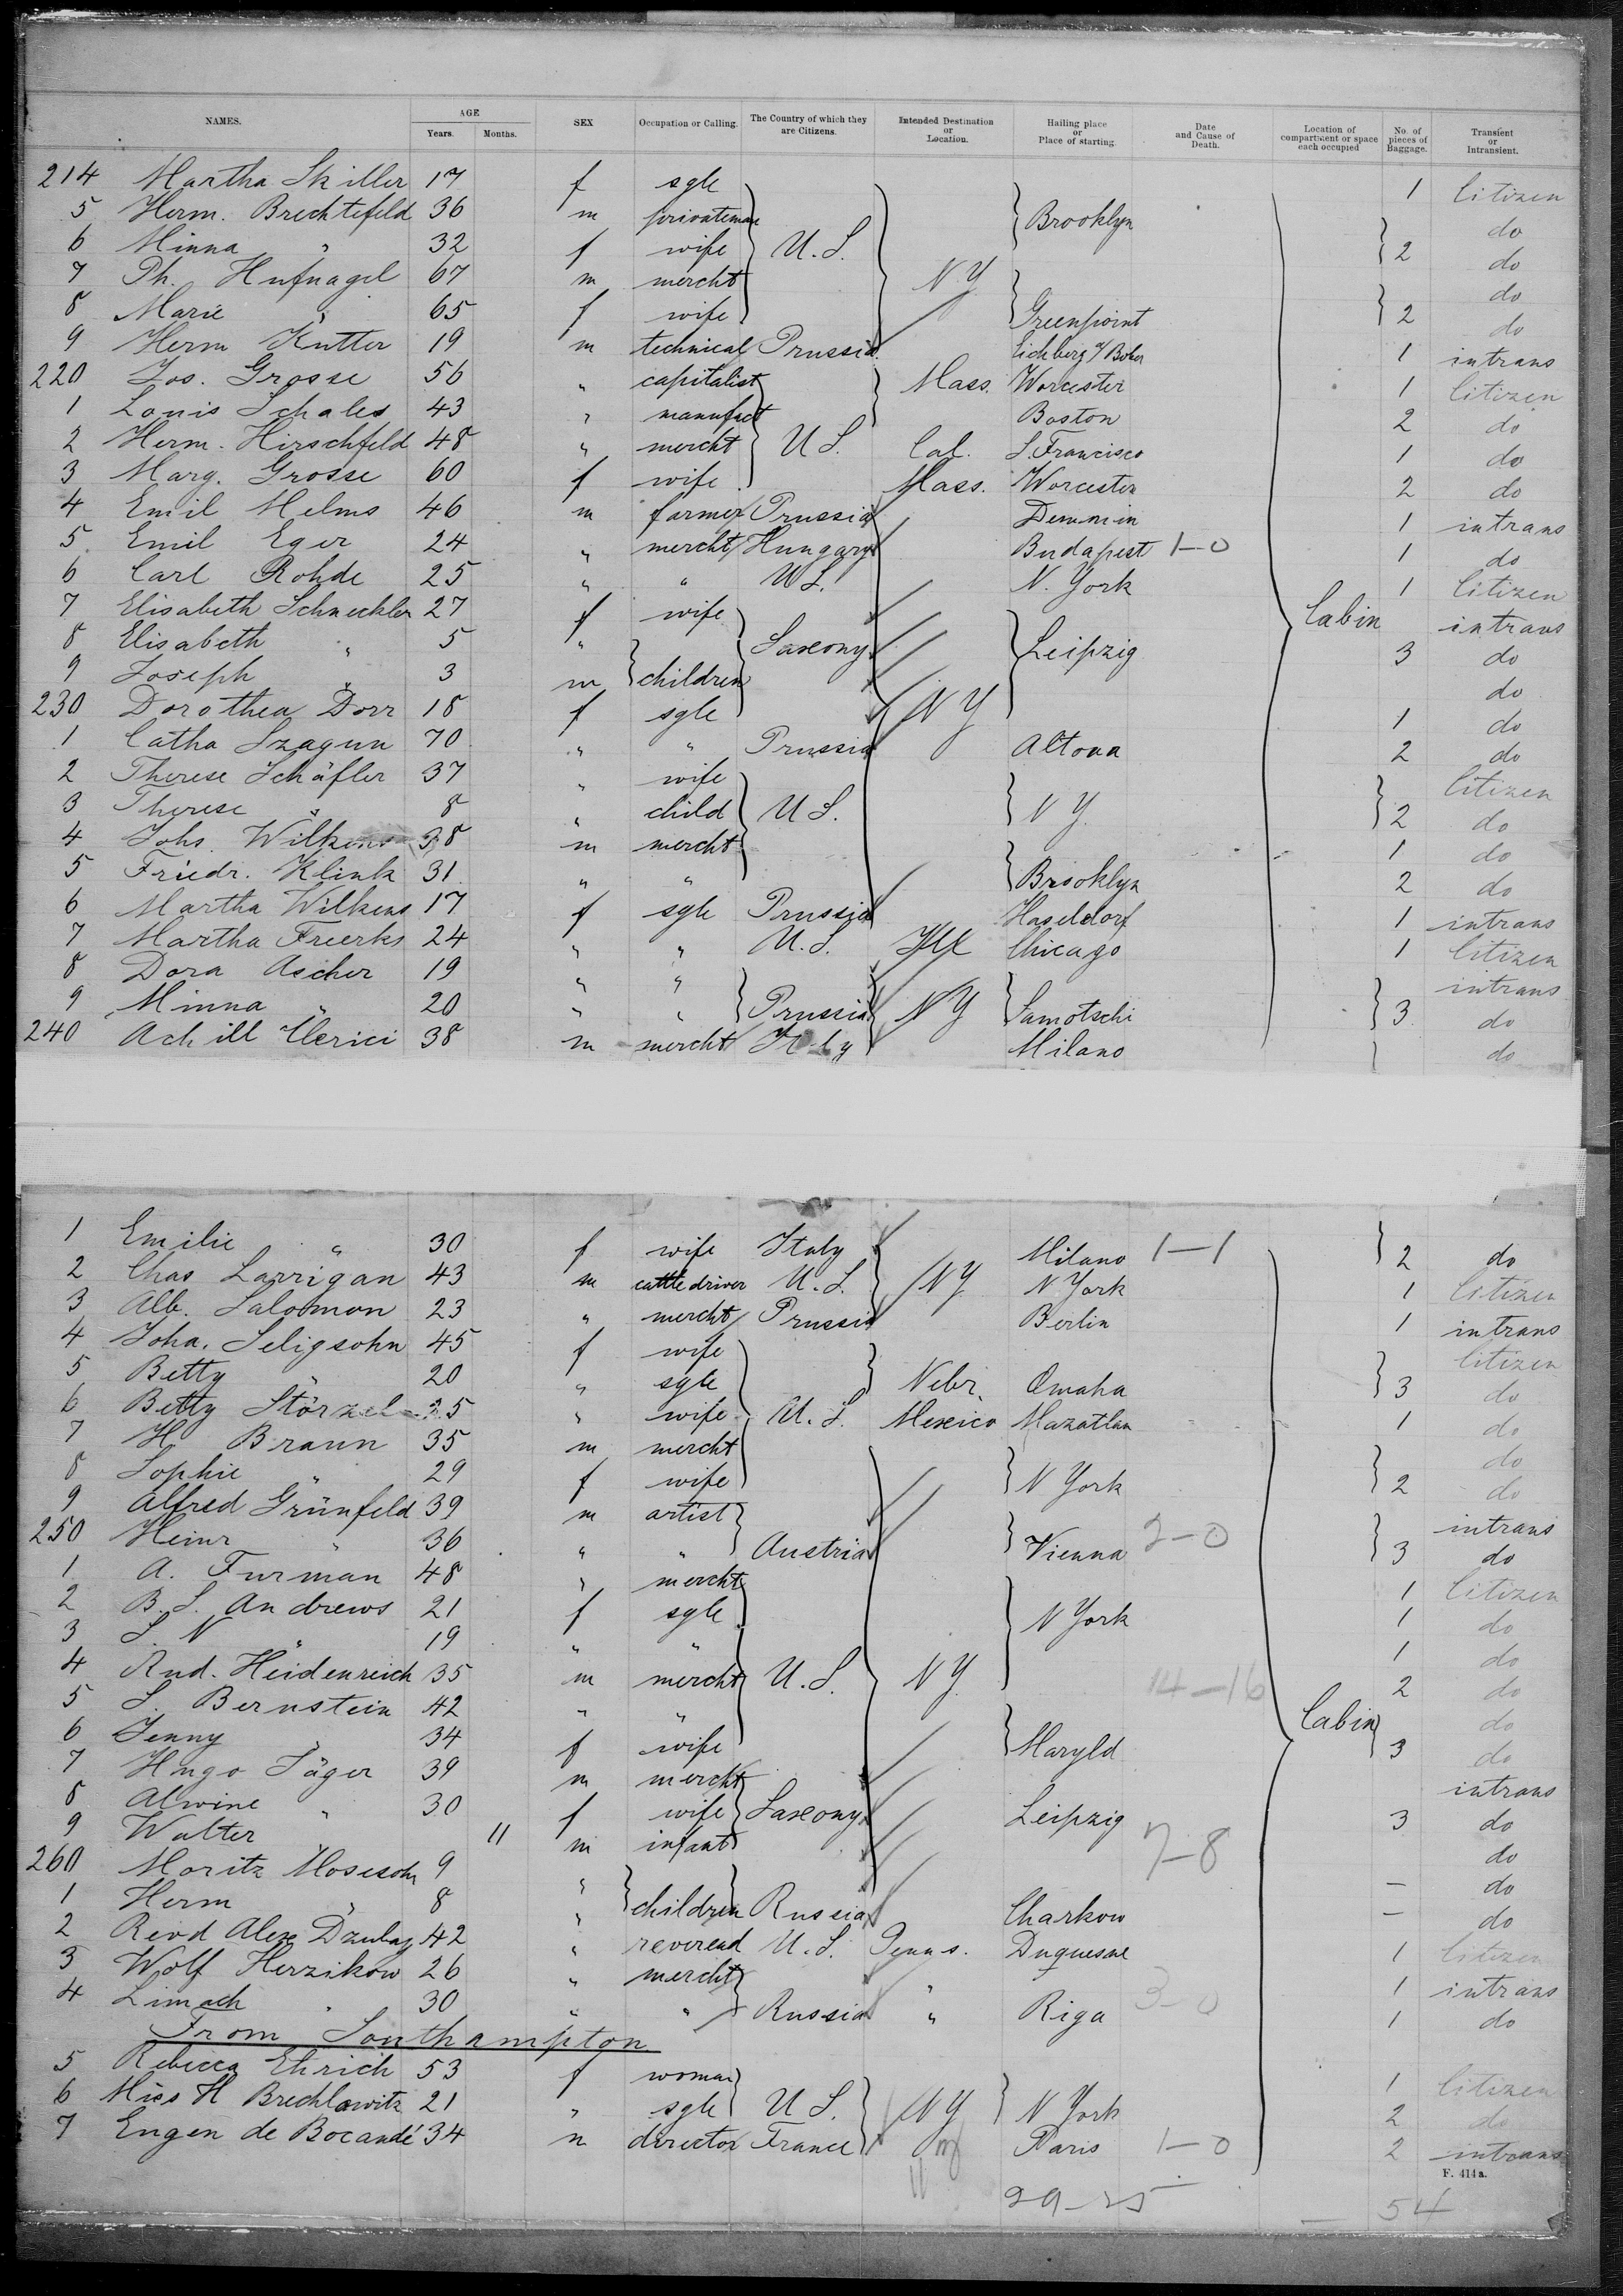 NAMES. AGE SEX Occupation or Calling. The Country of which they are Citizens. Intended Destination or Location. Hailing place or Place of starting. Date and Cause of Death. Location of compartment or space each occupied No. of pieces of Baggage. Transient or Intransient.
Years. Months.
214 Martha Skiller 17 f sgle 1 Citizen
5 Herm. Brechtefeld 36 m privateman Brooklyn do
6 Minna " 32 f wife U.S. 2 do
7 Ph. Hufnagel 67 m mercht N.Y. do
8 Marie " 65 f wife Greenpoint 2 do
9 Herm Kutter 19 m technical Prussia Eichberg 1 intrans
220 Jos. Grosse 56 " capitalist Mass. Worcester 1 Citizen
1 Louis Schales 43 " manufact Boston 2 do
2 Herm. Hirschfeld 48 " mercht U.S. Cal. S. Francisco 1 do
3 Marg. Grosse 60 f wife Mass. Worcester 2 do
4 Emil Helms 46 m farmer Prussia Demmin 1 intrans
5 Emil Eger 24 " mercht Hungary Budapest 1-0 1 do
6 Carl Rohde 25 " " U.S. N. York 1 Citizen
7 Elisabeth Schneckler 27 f wife Cabin intrans
8 Elisabeth " 5 " Saxony Leipzig 3 do
9 Joseph " 3 m children do
230 Dorothea Dorr 18 f sgle N Y 1 do
1 Catha Szagun 70 " " Prussia Altona 2 do
2 Therese Schäfler 37 " wife Citizen
3 Therese " 8 " child U.S. N Y. 2 do
4 Johs. Wilkens 38 m mercht 1 do
5 Friedr. Klink 31 " " Brooklyn 2 do
6 Martha Wilkens 17 f sgle Prussia Haseldorf 1 intrans
7 Martha Freerks 24 " " U.S. Ill Chicago 1 Citizen
8 Dora Ascher 19 " " intrans
9 Minna " 20 " " Prussia N Y Samotschi 3 do
240 Achill Clerici 38 m mercht Italy Milano do
1 Emilie " 30 f wife Italy Milano 1-1 2 do
2 Chas Larrigan 43 m cattle driver U.S. N Y N York 1 Citizen
3 Alb. Salomon 23 " mercht Prussia Berlin 1 intrans
4 Joha. Seligsohn 45 f wife Citizen
5 Betty " 20 " sgle Nebr. Omaha 3 do
6 Betty Störzel 35 " wife U.S. Mexico Mazatlan 1 do
7 H Braun 35 m mercht do
8 Sophie " 29 f wife N York 2 do
9 Alfred Grünfeld 39 m artist intrans
250 Heinr " 36 " " Austria Vienna 2-0 3 do
1 A. Furman 48 " mercht 1 Citizen
2 B. S. Andrews 21 f sgle N York 1 do
3 S. N " 19 " " 1 do
4 Rud. Heidenreich 35 m mercht U.S. N Y. 14-16 2 do
5 S. Bernstein 42 " " Cabin do
6 Jenny " 34 f wife Maryld 3 do
7 Hugo Jäger 39 m mercht intrans
8 Alwine " 30 f wife Saxony Leipzig 3 do
9 Walter " 11 m infant 7-8 do
260 Moritz Mosesohn 9 " - do
1 Herm " 8 " children Russia Charkow - do
2 Revd Alex Dzubay 42 " reverend U.S. Penns. Duquesne 1 Citizen
3 Wolf Herzikow 26 " mercht " 1 intrans
4 Simach " 30 " " Russia " Riga 3-0 1 do
From Southampton
5 Rebecca Ehrich 53 f woman 1 Citizen
6 Miss H Brechlawitz 21 " sgle U.S. N Y N York 2 do
7 Eugen de Bocandé 34 m director France Paris 1-0 2 intrans
F. 414a.
29-25 54